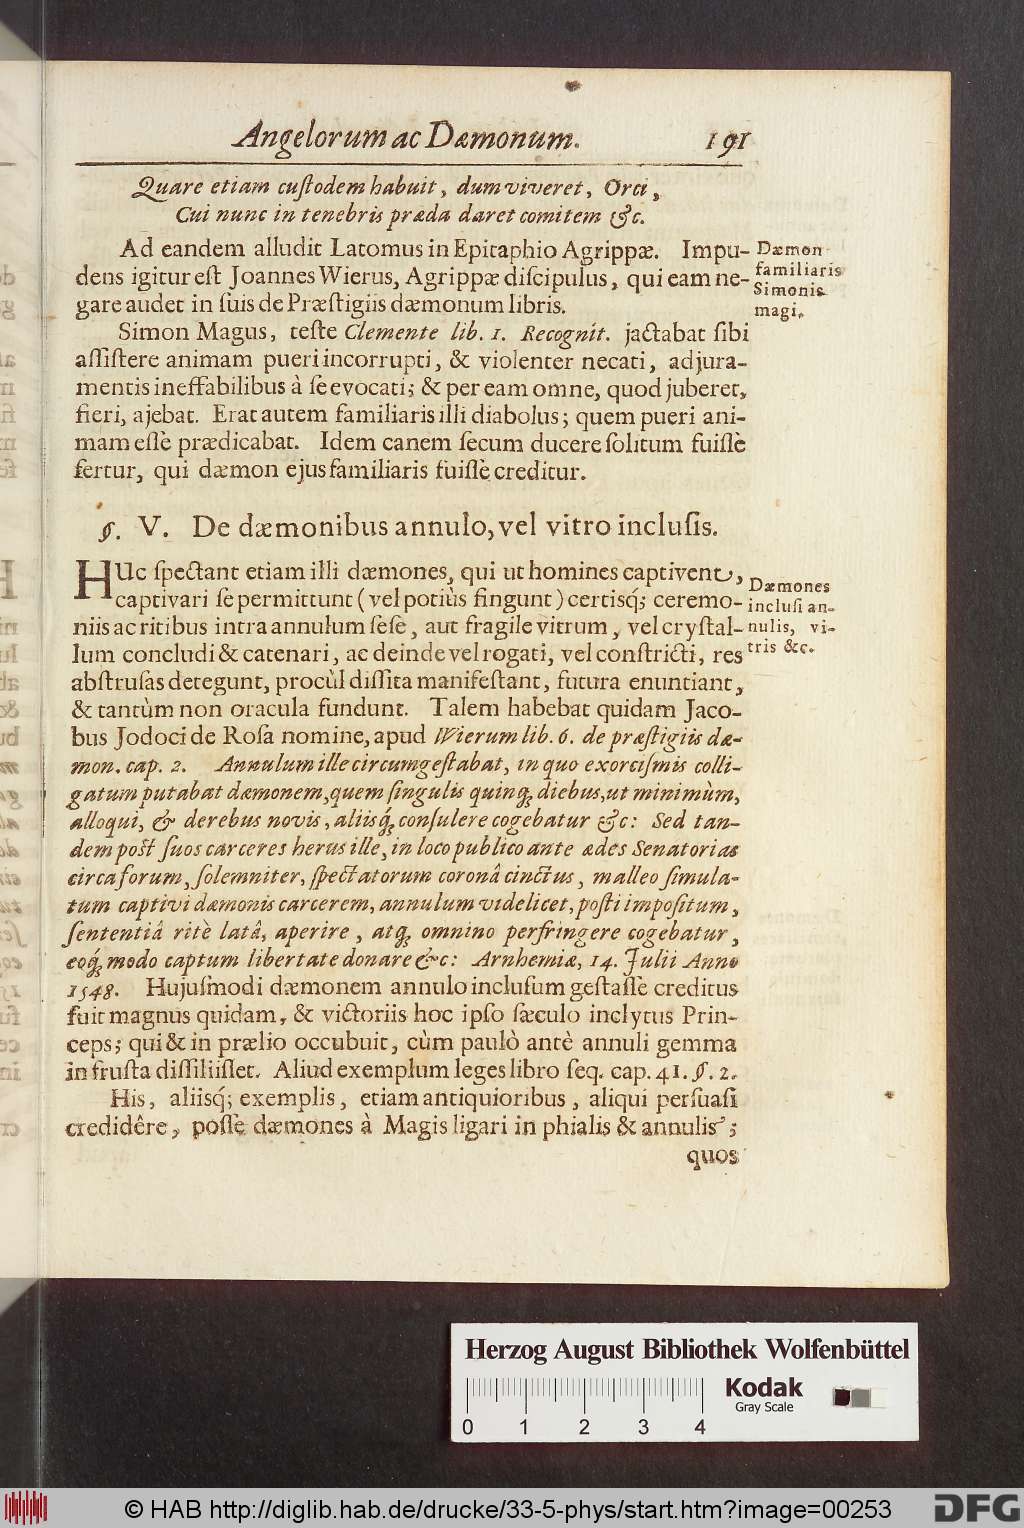 Angelorum ac Dæmonum. 191
Quare etiam cuſtodem habuit, dum viveret, Orci,
Cui nunc in tenebris præda daret comitem &c.
Ad eandem alludit Latomus in Epitaphio Agrippæ. Impu-
dens igitur eſt Joannes Wierus, Agrippæ diſcipulus, qui eam ne-
gare audet in ſuis de Præſtigiis dæmonum libris.
Dæmon
familiaris
Simonis
magi.
Simon Magus, teſte Clemente lib. 1. Recognit. jactabat ſibi
aſſiſtere animam pueri incorrupti, & violenter necati, adjura-
mentis ineffabilibus à ſe evocati; & per eam omne, quod juberet,
fieri, ajebat. Erat autem familiaris illi diabolus; quem pueri ani-
mam eſſe prædicabat. Idem canem ſecum ducere ſolitum fuiſſe
fertur, qui dæmon ejus familiaris fuiſſe creditur.
§. V. De dæmonibus annulo, vel vitro inclusis.
HUc ſpectant etiam illi dæmones, qui ut homines captivent,
captivari ſe permittunt (vel potiùs fingunt) certisq́; ceremo-
niis ac ritibus intra annulum ſeſe, aut fragile vitrum, vel cryſtal-
lum concludi & catenari, ac deinde vel rogati, vel conſtricti, res
abſtruſas detegunt, procùl diſſita manifeſtant, futura enuntiant,
& tantùm non oracula fundunt. Talem habebat quidam Jaco-
bus Jodoci de Roſa nomine, apud Wierum lib. 6. de præſtigiis dæ-
mon. cap. 2. Annulum ille circumgeſtabat, in quo exorciſmis colli-
gatum putabat dæmonem, quem ſingulis quinq; diebus, ut minimùm,
alloqui, & de rebus novis, aliisq́; conſulere cogebatur &c: Sed tan-
dem poſt ſuos carceres herus ille, in loco publico ante ædes Senatorias
circa forum, ſolemniter, ſpectatorum coronâ cinctus, malleo ſimula-
tum captivi dæmonis carcerem, annulum videlicet, poſti impoſitum,
ſententiâ ritè latâ, aperire, atq; omnino perfringere cogebatur,
eoq́; modo captum libertate donare &c: Arnhemiæ, 14. Julii Anno
1548. Hujuſmodi dæmonem annulo incluſum geſtaſſe creditus
fuit magnus quidam, & victoriis hoc ipſo ſæculo inclytus Prin-
ceps; qui & in prælio occubuit, cùm paulò antè annuli gemma
in fruſta diſſiliiſſet. Aliud exemplum leges libro ſeq. cap. 41. §. 2.
Dæmones
incluſi an-
nulis, vi-
tris &c.
His, aliisq́; exemplis, etiam antiquioribus, aliqui perſuaſi
credidêre, poſſe dæmones à Magis ligari in phialis & annulis;
quos
Herzog August Bibliothek Wolfenbüttel
Kodak
Gray Scale
0 1 2 3 4
© HAB http://diglib.hab.de/drucke/33-5-phys/start.htm?image=00253
DFG